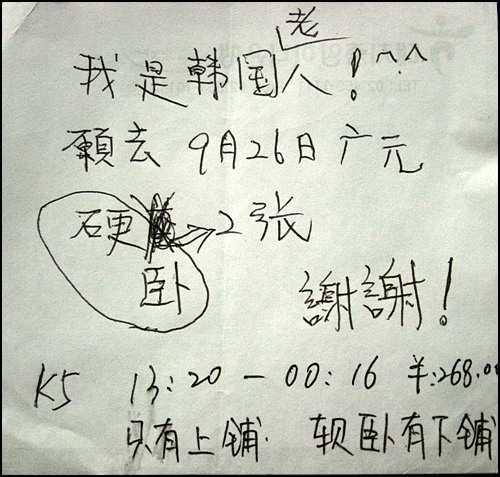 我是韩国老人!^^
願去 9月26日 广元
硬 → 2张
卧
謝謝!
K5 13:20 — 00:16 ¥:268.00
只有上铺. 软卧有下铺